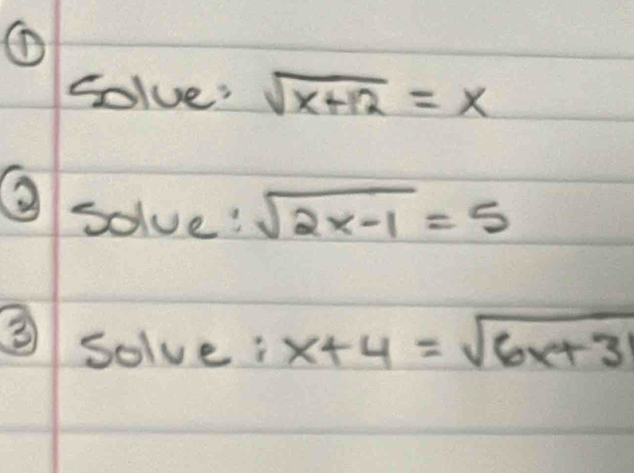 ① Solve: √(x+12) = x
② Solve: √(2x-1) = 5
③ Solve: x+4 = √(6x+31